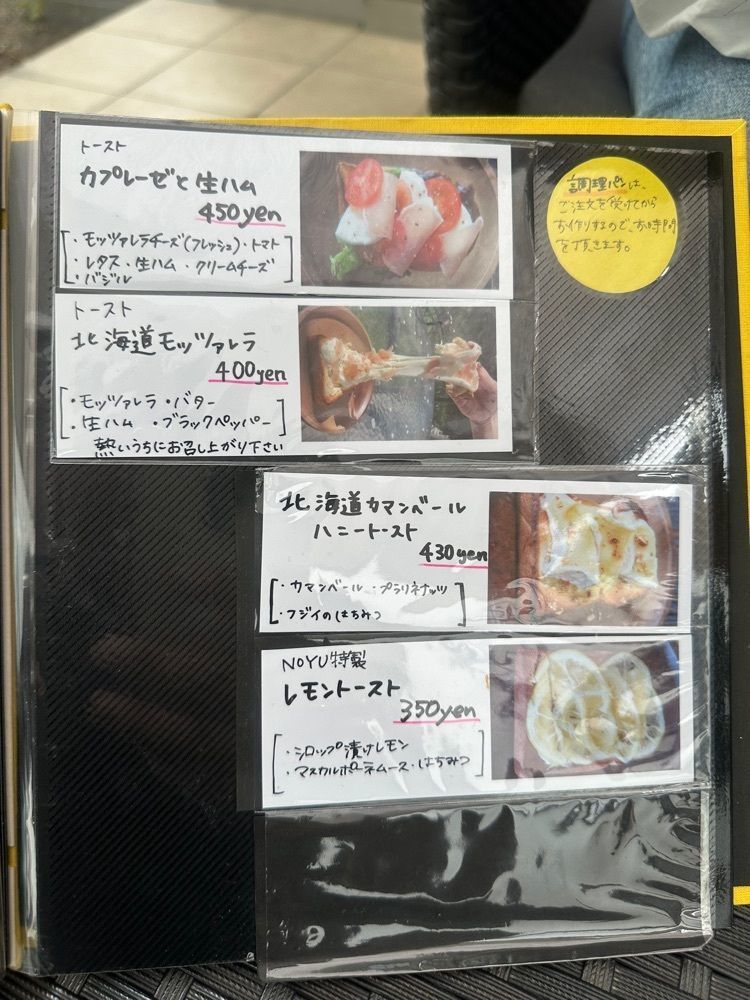 トースト
カプレーゼと生ハム
450yen
[・モッツァレラチーズ(フレッシュ)・トマト
・レタス・生ハム・クリームチーズ
・バジル]
トースト
北海道モッツァレラ
400yen
[・モッツァレラ・バター
・生ハム ・ブラックペッパー]
熱いうちにお召し上がり下さい
調理パンは、
ご注文を受けてから
お作りするので、お時間
を頂きます。
北海道カマンベール
ハニートースト
430yen
[・カマンベール ・プラリネナッツ
・フジイのはちみつ]
NOYU特製
レモントースト
350yen
[・シロップ漬けレモン
・マスカルポーネムース・はちみつ]